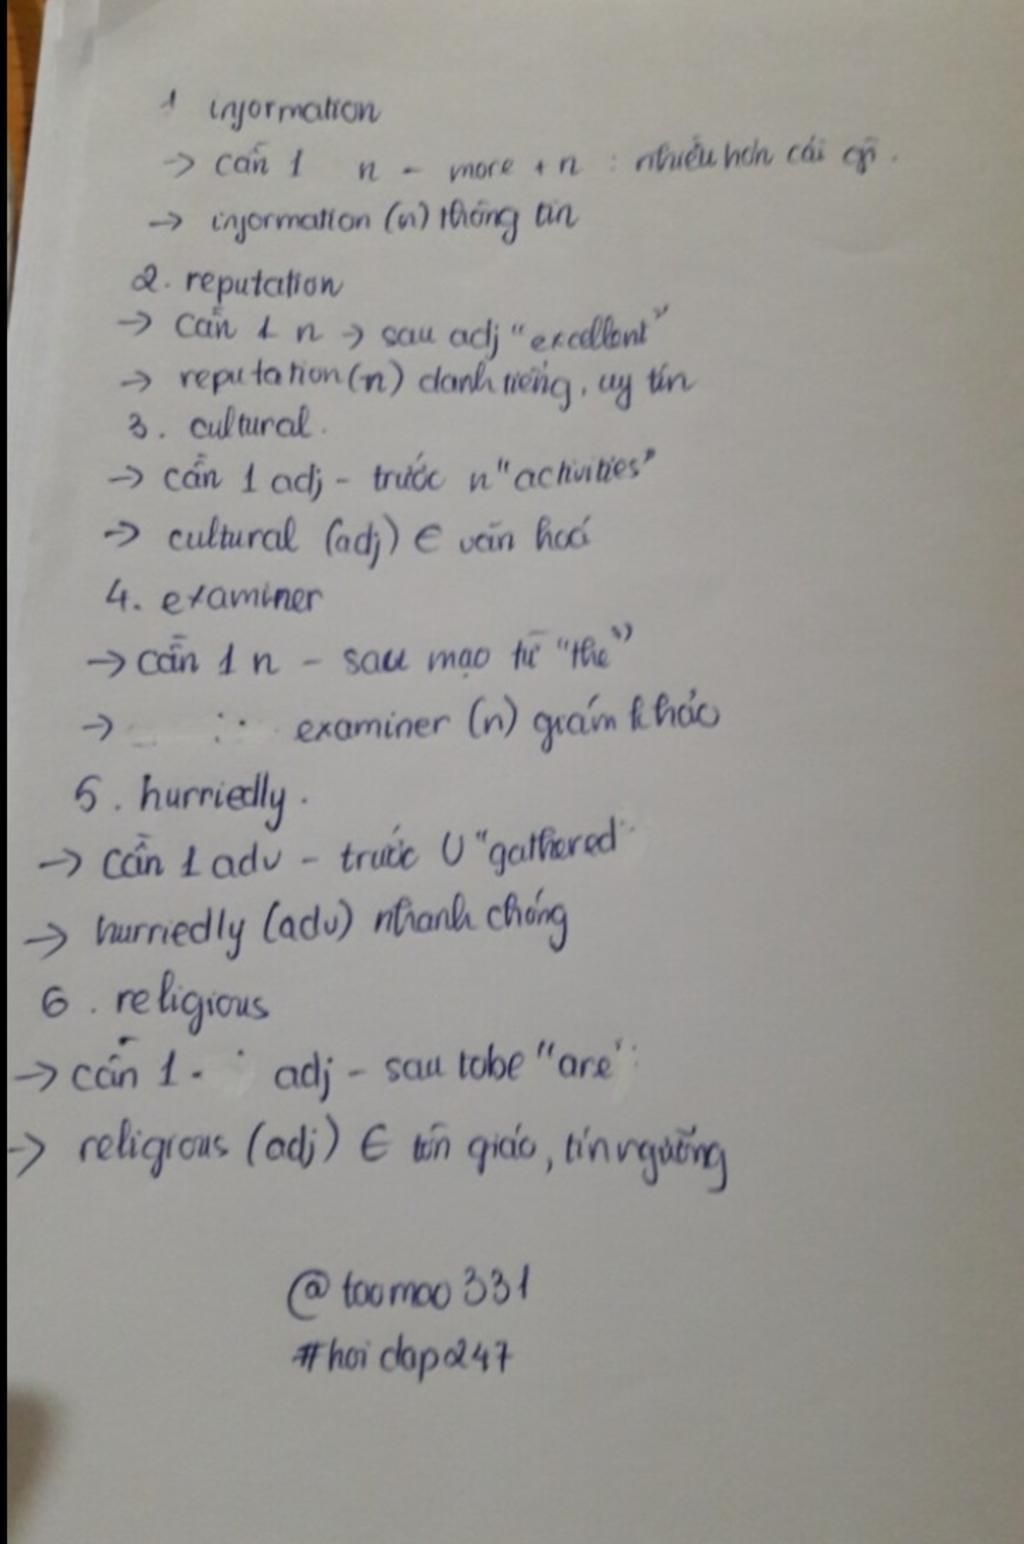 1 information
→ cần 1 n - more + n : nhiều hơn cái gì.
→ information (n) thông tin
2. reputation
→ cần 1 n → sau adj "excellent"
→ reputation (n) danh tiếng, uy tín
3. cultural.
→ cần 1 adj - trước n "activities"
→ cultural (adj) ∈ văn hoá
4. examiner
→ cần 1 n - sau mạo từ "the"
→ examiner (n) giám khảo
5. hurriedly.
→ cần 1 adv - trước V "gathered"
→ hurriedly (adv) nhanh chóng
6. religious
→ cần 1 adj - sau tobe "are"
→ religious (adj) ∈ tôn giáo, tín ngưỡng
@taomao331
#hoidap247